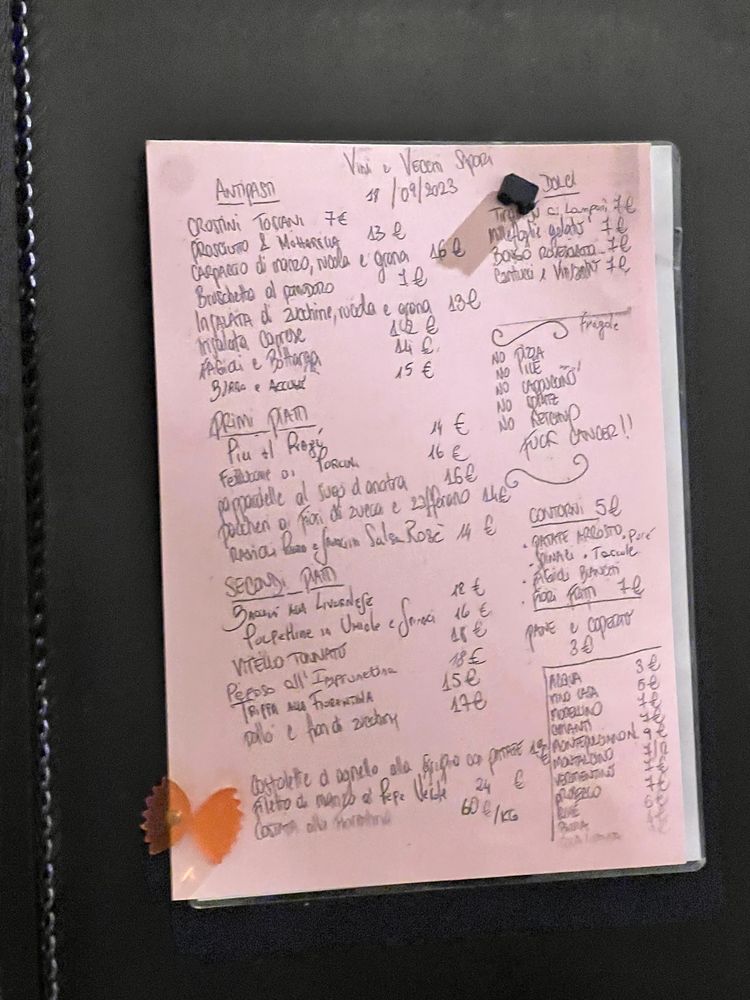 Vini e Vecchi Sapori
18/09/2023
ANTIPASTI
CROSTINI TOSCANI 7€
PROSCIUTTO & MOZZARELLA 13 €
CARPACCIO di manzo, rucola e grana 16 €
Bruschetta al pomodoro 7 €
INSALATA di zucchine, rucola e grana 13€
Insalata Caprese €
FAGIOLI e Bottarga 14 €
BURRO e ACCIUGHE 15 €
PRIMI PIATTI
14 €
Fettuccine ai PORCINI 16 €
pappardelle al sugo d'anatra 16€
paccheri ai fiori di zucca e zafferano 14€
RAVIOLI e in Salsa Rosè 14 €
SECONDI PIATTI
BACCALÀ ALLA LIVORNESE €
POLPETTINE in UMIDO e 16 €
VITELLO TONNATO 18 €
PEPOSO all'Imprunetina 18€
TRIPPA ALLA FIORENTINA 15€
pollo e fiori di zucchini 17€
Costolette d'agnello alla griglia con PATATE
Filetto di manzo al Pepe Verde 24 €
COSTATA alla fiorentina 60€/KG
DOLCI
ai Lamponi 7€
Millefoglie gelato 7€
7€
Cantucci e VinSanto 7€
Fragole
NO PIZZA
NO ICE
NO CAPPUCCINO
NO SPRITZ
NO KETCHUP
FUCK CANCER!!
CONTORNI 5€
• PATATE ARROSTO • Purè
• SPINACI •
• FAGIOLI BIANCHI
• FIORI FRITTI 7€
PANE e COPERTO
3€
ACQUA 3€
VINO CASA 5€
MORELLINO 7€
CHIANTI 7€
MONTEPULCIANO N. 9€
MONTALCINO
VERMENTINO
PROSECCO
BIRRA